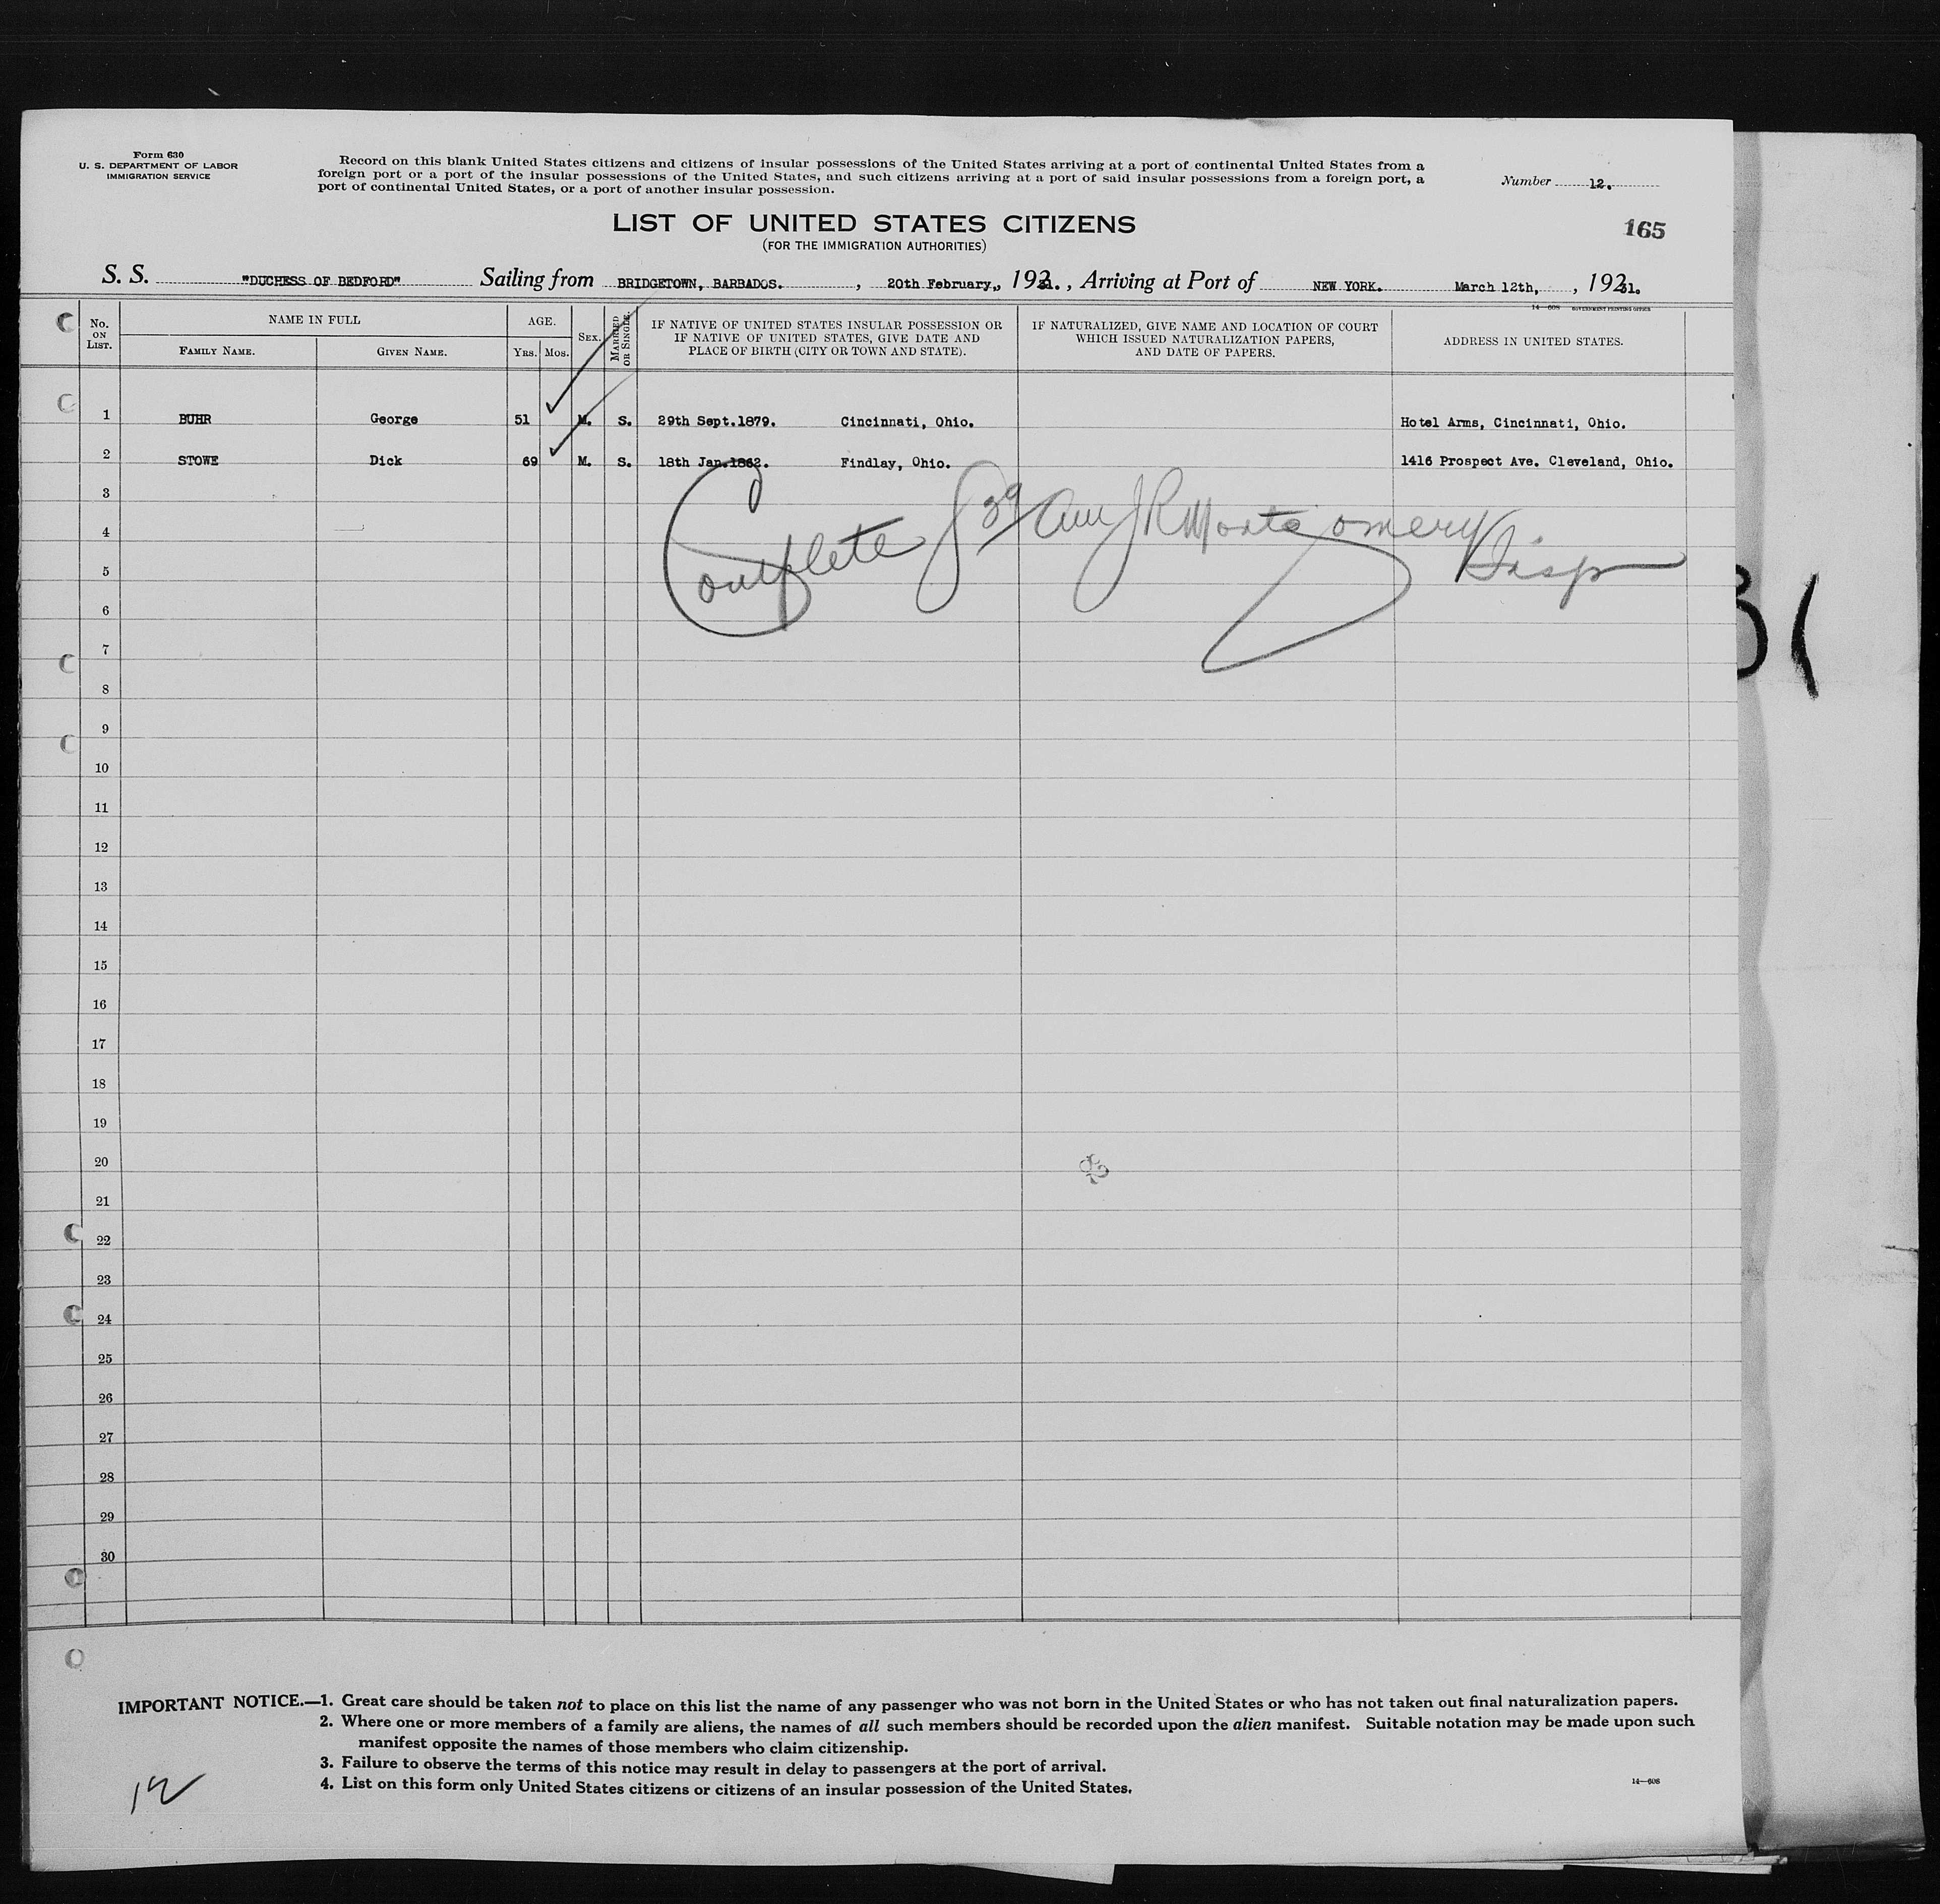 Form 630
U. S. DEPARTMENT OF LABOR
IMMIGRATION SERVICE
Record on this blank United States citizens and citizens of insular possessions of the United States arriving at a port of continental United States from a
foreign port or a port of the insular possessions of the United States, and such citizens arriving at a port of said insular possessions from a foreign port, a
port of continental United States, or a port of another insular possession.
Number 12.
165
LIST OF UNITED STATES CITIZENS
(FOR THE IMMIGRATION AUTHORITIES)
S. S. "DUCHESS OF BEDFORD" Sailing from BRIDGETOWN, BARBADOS. , 20th February, , 1931. , Arriving at Port of NEW YORK. March 12th, , 19231.
14—608 GOVERNMENT PRINTING OFFICE
No. ON LIST.
NAME IN FULL
FAMILY NAME.
GIVEN NAME.
AGE.
YRS. MOS.
SEX.
MARRIED OR SINGLE.
IF NATIVE OF UNITED STATES INSULAR POSSESSION OR
IF NATIVE OF UNITED STATES, GIVE DATE AND
PLACE OF BIRTH (CITY OR TOWN AND STATE).
IF NATURALIZED, GIVE NAME AND LOCATION OF COURT
WHICH ISSUED NATURALIZATION PAPERS,
AND DATE OF PAPERS.
ADDRESS IN UNITED STATES.
1 BUHR George 51 M. S. 29th Sept.1879. Cincinnati, Ohio. Hotel Arms, Cincinnati, Ohio.
2 STOWE Dick 69 M. S. 18th Jan.1862. Findlay, Ohio. 1416 Prospect Ave. Cleveland, Ohio.
3
4
Complete JR Montgomery
Insp
5
6
7
8
9
10
11
12
13
14
15
16
17
18
19
20
21
22
23
24
25
26
27
28
29
30
IMPORTANT NOTICE.—1. Great care should be taken not to place on this list the name of any passenger who was not born in the United States or who has not taken out final naturalization papers.
2. Where one or more members of a family are aliens, the names of all such members should be recorded upon the alien manifest. Suitable notation may be made upon such
manifest opposite the names of those members who claim citizenship.
3. Failure to observe the terms of this notice may result in delay to passengers at the port of arrival.
4. List on this form only United States citizens or citizens of an insular possession of the United States.
14—608
12